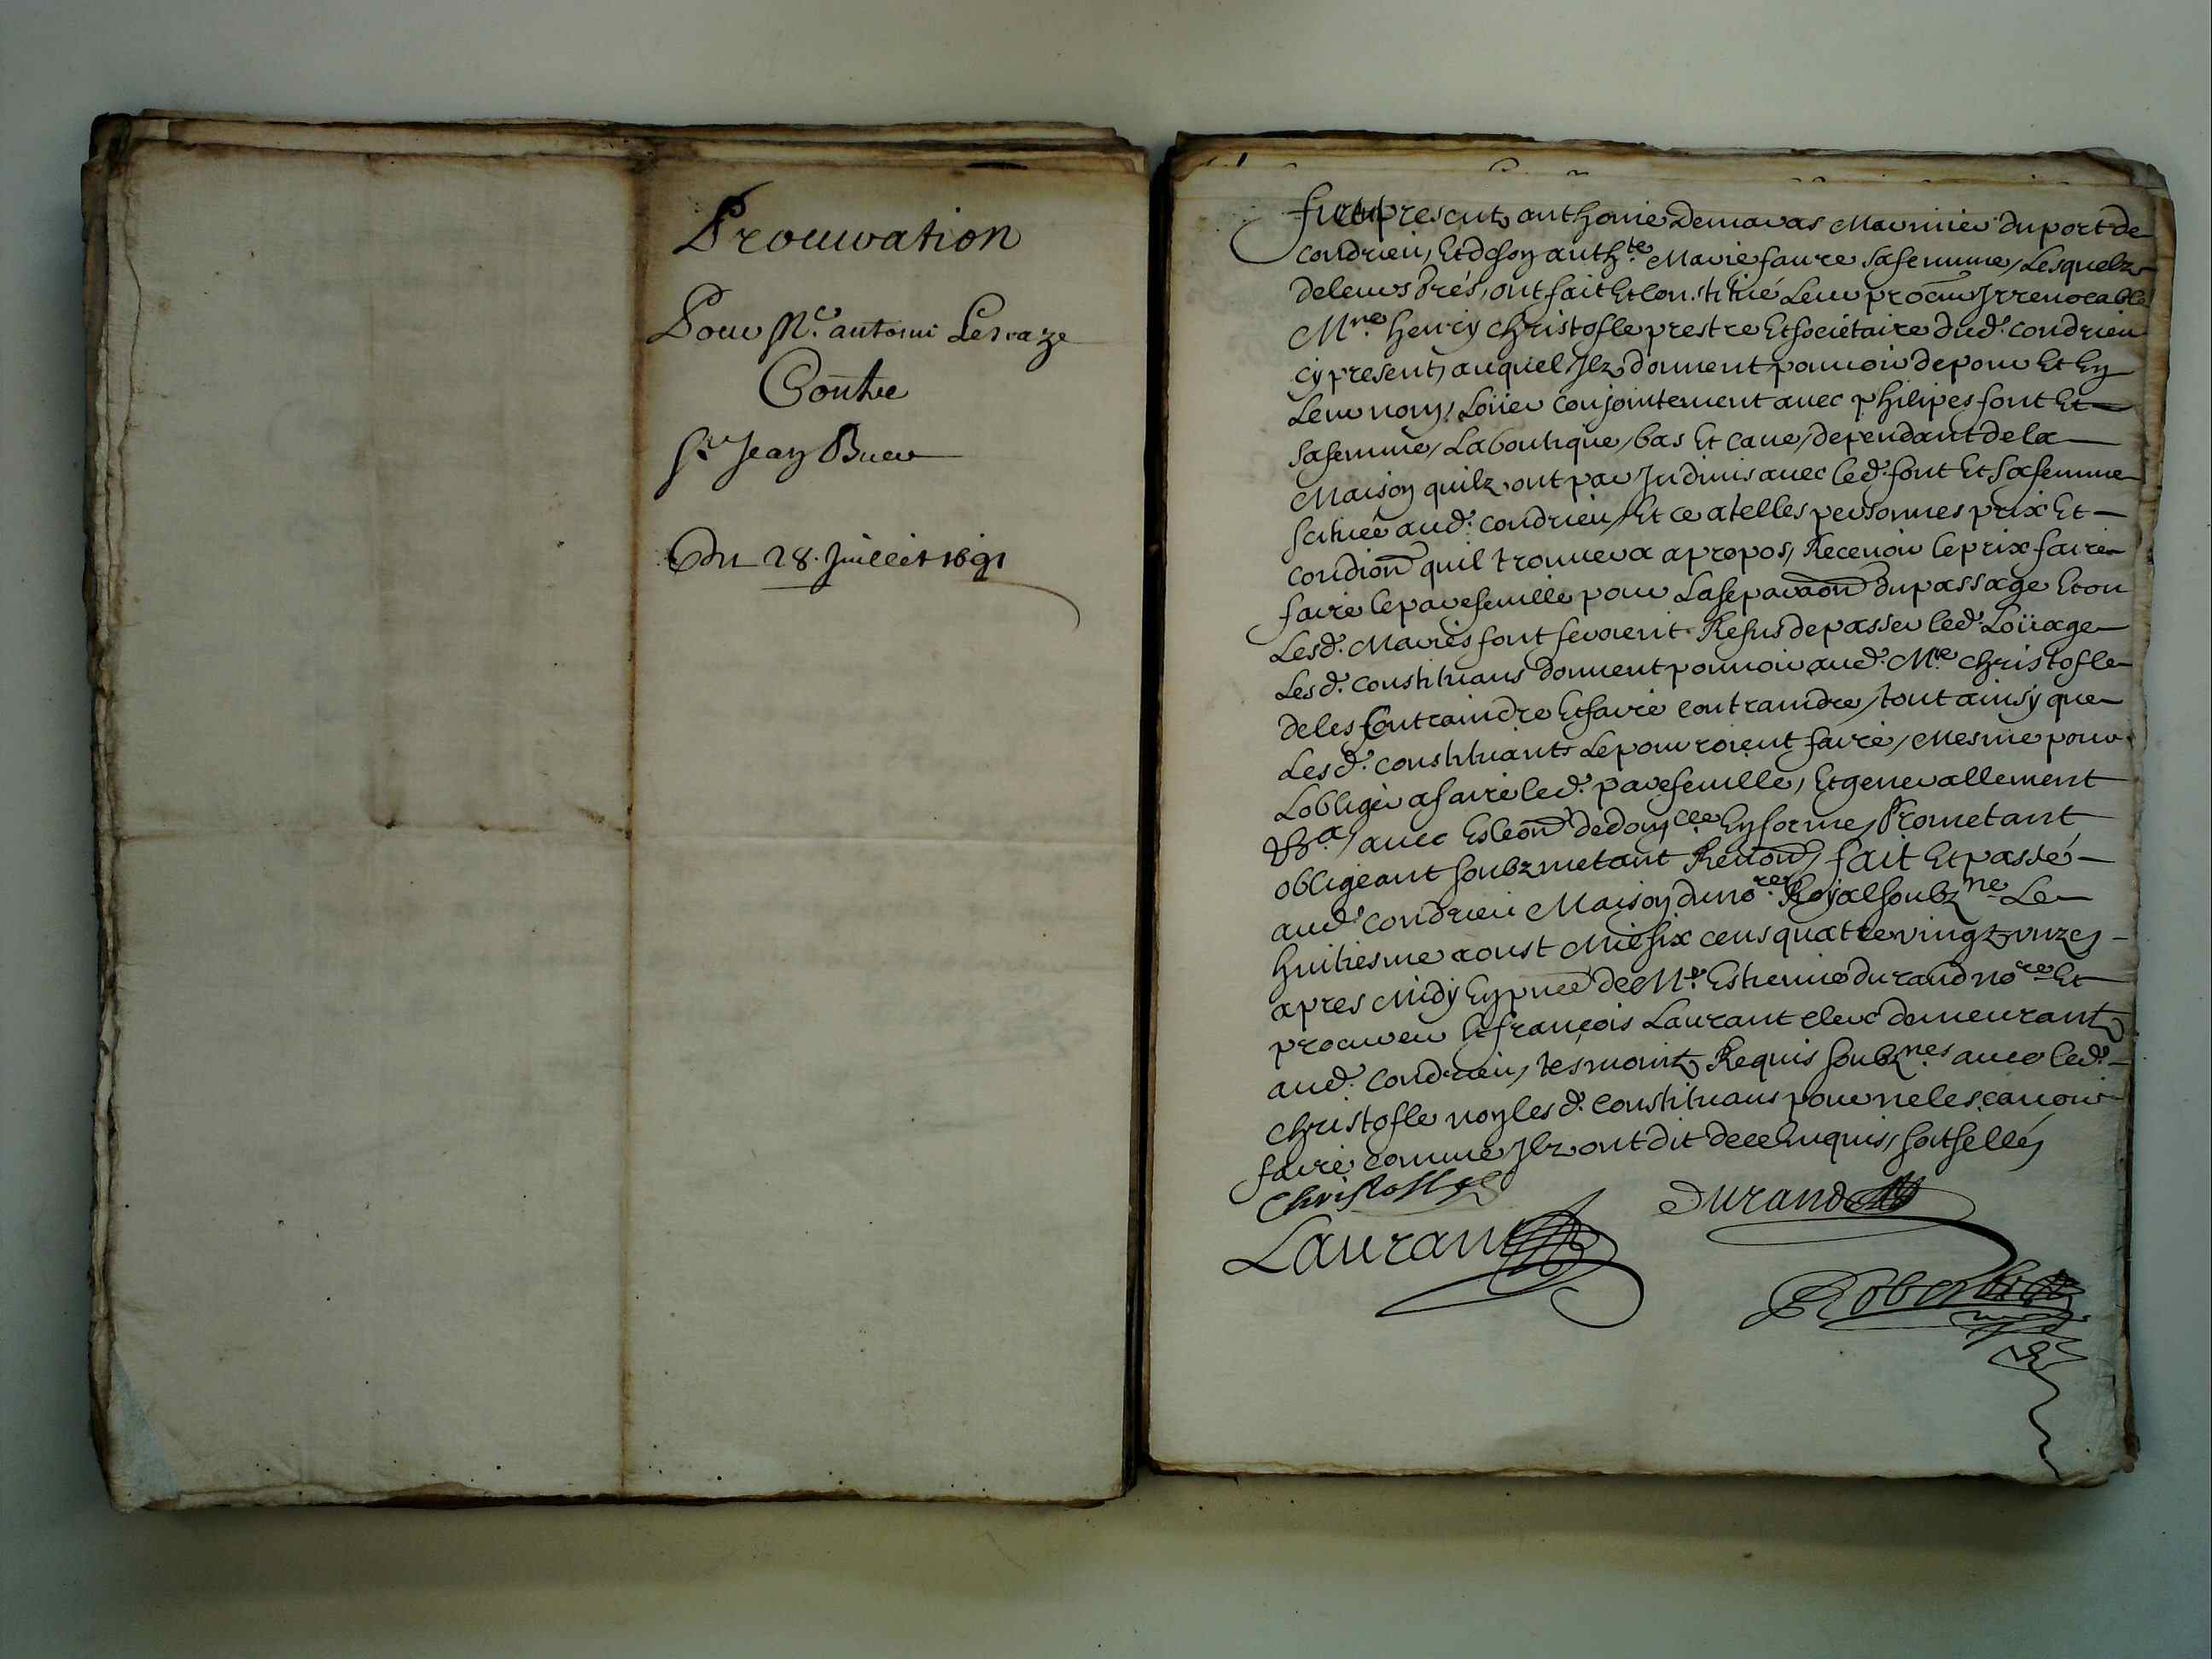 Procuration
Pour Mr. antoine Lerraze
Contre
Sr Jean Buer
Du 28. Juillet 1691
furent presents anthonie Demaras Marinier du port de
condrieu, Et de son auth.te Marie faure sa femme, Lesquelz
de leurs grés, ont fait Et constitué Leur procur Irreuocable
Mre henry christofle prestre Et societaire dud. condrieu
cy present, auquel Ilz donnent pouuoir de pour Et En
Leur nom, Loüer conjointement auec philipes font Et
sa femme, La boutique, bas Et caue, dependant de la
Maison quilz ont par Indiuis auec led. font Et sa femme
scituée aud. condrieu, Et ce a telles personnes prix Et
condion quil trouuera apropos, Receuoir le prix faire
faire le parefeuille pour La separaon du passage Et ou
Lesd. Mariés font feroient Refus de passer led. Loüage
Les d. constituans donnent pouuoir aud. Mre christofle
de les Contraindre Et faire contraindre, tout ainsy que
Les d. constituants Le pourroient faire, Mesme pour
Lobliger a faire led. parefeuille, Et generallement
&a, auec Esleon de domcile En forme, Prometant
obligeant soubzmetant Renon, fait Et passé
aud. condrieu Maison du nore. Royal soubzne Le
huitiesme aoust Mil six cens quatre vingtz unze
apres Midy En pnce de Me Estienne durand nore Et
procureur Et françois Laurant clerc demeurantz
aud. condrieu, tesmointz Requis soubznes auec led.
christofle non les d. constituans pour ne le scauoir
faire comme Ilz ont dit de ce Enquis, soit sellé
Christofle
Durand
Laurant